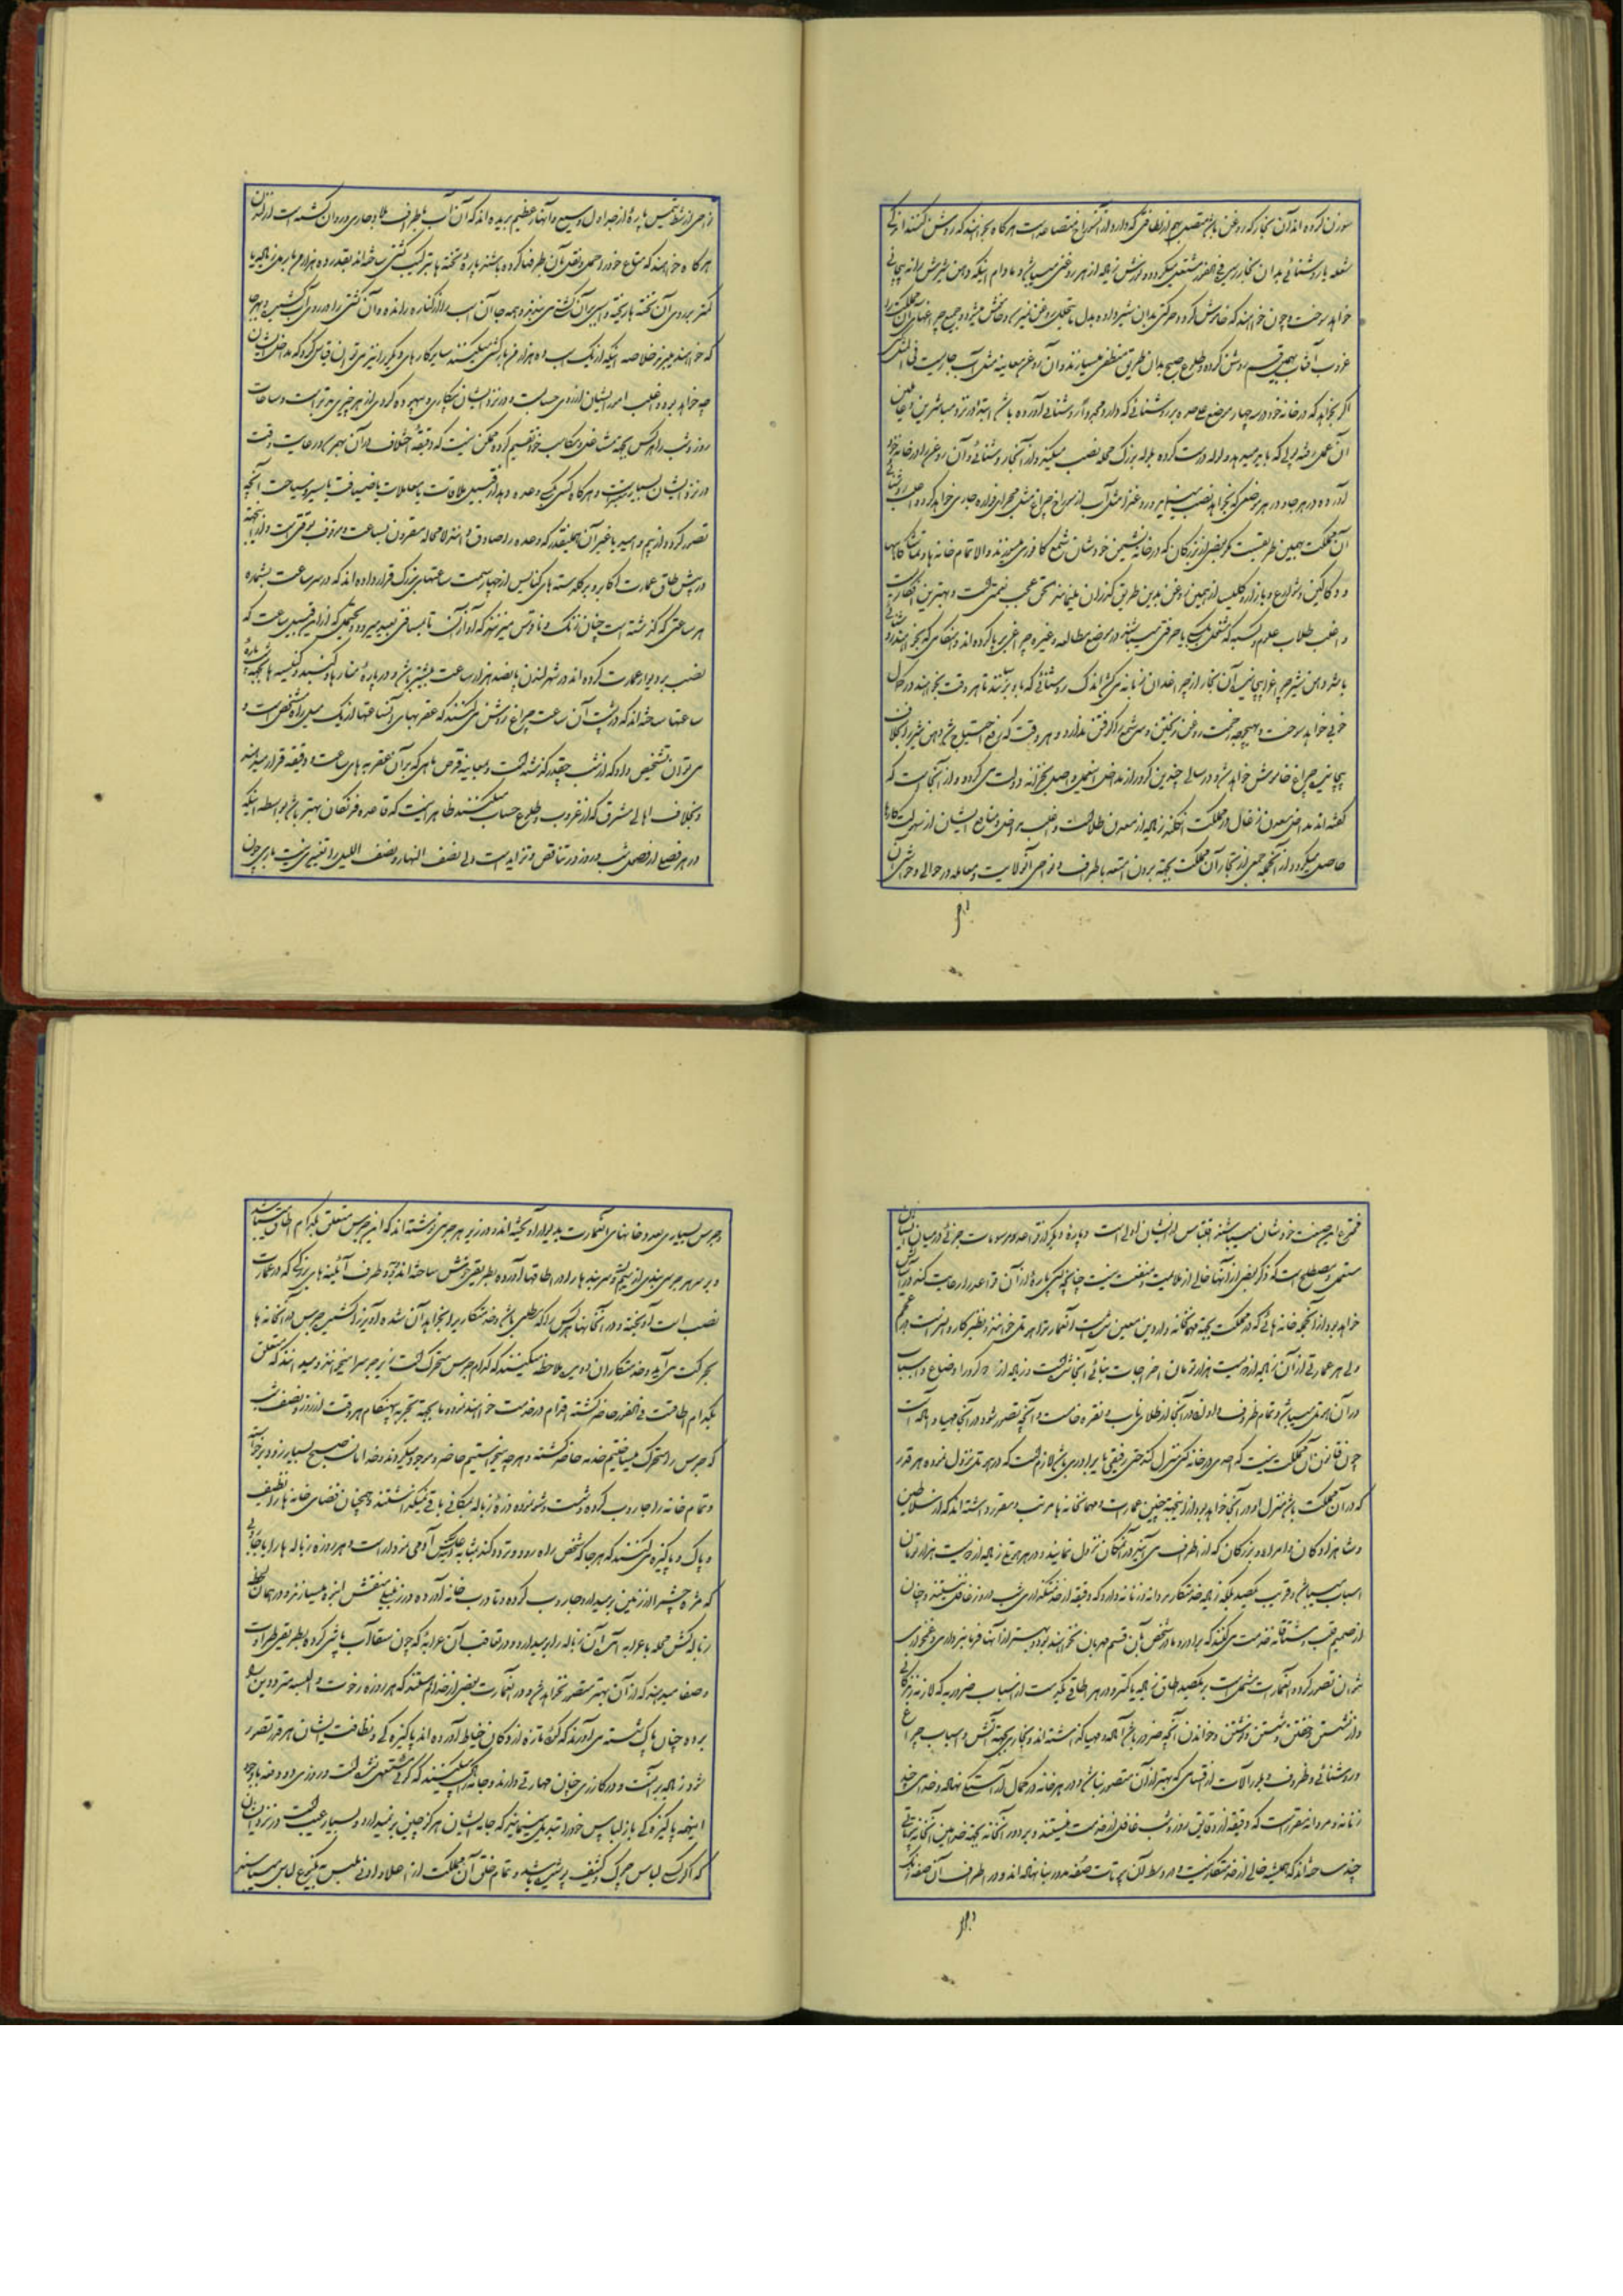 سوزن کرده اند آن بخار که روغن باشد متصل بهم از لطافتی که دارد از آنسوراخ متصاعد است هرگاه بخواهند که روشن کنند اندکی
شعله یا روشنائی بدان بخار رسد فی الفور مشتعل میگردد و سوزش زیاده از هر روغنی میباشد و مادام اینکه دهن شیرش را نه پیچانی
خواهد سوخت و چون خواهند که خاموش کردد حرکتی بدان شیر داده
غروب آفتاب بهمین قسم روشن کرده و طلوع صبح بدان طریق منطفی میسازند و آن روغن معاینه مثل آب جاریست
اگر بخواهد که در خانه خود در چهار موضع
آن عمل رفته پولی که باید میدهد و لوله درست کرده بلوله بزرگ محله نصب میکند و از آنجا روشنائی و آن روغن را در خانه خود
آورده در هر جا و در هر موضعی که بخواهد نصب مینماید و روغن مثل آب از سوراخ چراغ مثل مجرای فواره جاری خواهد کرد
آن مملکت بهمین طریقست مگر بعضی از بزرگان که در خانه نشیمن خودشان شمع کافوری میسوزند والا تمام خانه ها و تماشاگاهها
و دکاکین و شوارع و بازار و کلیسا از همین روغن بدین طریق گذران مینمایند الحق عجب نعمتی است و بهترین
و اغلب طلاب علوم و کسبه که شغل یا حرفتی میباشند در موضع مطالعه و غیره چراغی برپا کرده اند
باشد دهن شیر چراغ را پیچانیده آن بخار از چراغدان زبانه می کشد اندک روشنائی که باو برسانند تا هر وقت بخواهند در کمال
خوبی خواهد سوخت و بهیچوجه زحمت روغن ریختن و سر شمع را گرفتن ندارد و هر وقت که رفع احتیاج شد دهن شیر را بخلاف
پیچانیده چراغ خاموش خواهد شد و در سالی چندین کرور از مداخل اینعمل واصل خزانه دولت می گردد و از آنجا است که
گفته اند مداخل معدن زغال در مملکت انگلند زیاده از معدن طلا است و اغلب مداخل و منافع ایشان از سهولت کارها
حاصل میگردد از آنجمله جمعی از تجار آن مملکت بجهة بردن امتعه باطراف و نواحی آنولایت و معامله در حوالی و حواشی آن
نواحی از شط تمس پاره از جداول وسیع و انهار عظیم بریده اند که آن آب باطراف بلاد جاری و روان گشته است
هرگاه خواهند که متاع خود را حمل و نقل بآن طرفها کرده باشند پاره تخته با ترکیب کشتی ساخته اند بقدر ده هزار من بار
کمتر بر روی آن تخته ها ریخته و اسبی بر آن کشتی می بندند و همه جا آن اسب را از کناره رانده و آن کشتی را در روی آب کشیده بهر جا
که خواهند میبرند خلاصه اینکه از یک اسب ده هزار من بار کشی میکنند سایر کارهای دیگر را نیز می توان قیاس کرد که مداخل ایشان
چه خواهد بود و اغلب امور ایشان از روی حسابست و در نزد ایشان بیکاری و بیهوده گردی از هر چیزی بدتر است و ساعات
روز و شب را هر کس بجهة مشاغل و مکاسب خود تقسیم کرده ممکن نیست که دقیقه اختلاف در آن بهم رسد و رعایت وقت
در نزد ایشان بسیار است و هرگاه کسی بکسی وعده دهد از قبیل ملاقات یا معاملات یا ضیافت یا سیر و سیاحت آنچه
تصور گردد از بیم و امید یا غیر آن همینقدر که وعده را صادق دانند لامحاله مقرون بساعت و موقوف بوقتی است و از اینجهة
در پیش طاق عمارات اکابر و بر گلدسته های کنایس از چهار سمت ساعتهای بزرگ قرار داده اند که در سر ساعت بشماره
هر ساعتی که گذشته است چنان زنگ و ناقوس میزنند که آواز آن تا مسافتی بعید میرود و تخمیناً که از این قبیل ساعت که
نصب بر دیوار عمارت کرده اند در شهر لندن پانصد هزار ساعت بیشتر باشد و در پاره منارها و گنبد و کلیسیا ها بجهة شب
ساعتها ساخته اند که در پشت آن ساعت چراغ روشن می کنند که عقربهای آنساعتها از یک میل راه مشخص است و
می توان تشخیص داد که از شب چقدر گذشته است و معاینه قرص ماهی که بر آن عقربه های ساعت و دقیقه قرار میدهند
و بخلاف اهالی مشرق که از غروب و طلوع حساب میکنند ظاهر اینست که قاعده فرنگان بهتر باشد بواسطه اینکه
در هر فصل از فصول شب و روز در تناقص و تزاید است ولی نصف النهار و نصف اللیل را تغییری نیست باری چون
مخترع این صنعت خودشان میباشند اقتباس از ایشان اولی است و پاره دیگر از قواعد و رسومات جزئی در میان ایشان
مستعمل و مصطلح است که ذکر بعضی از آنها خالی از ملایمت و منفعت نیست چنانچه کسی پاره از آن قواعد را رعایت کند
خواهد بود از آنجمله خانه هائی که در مملکت بجهة مهمانخانه واردین معین شده است آنعمارت را هوتل خوانند
ولی هر عمارتی از آن زیاده از دویست هزار تومان اخراجات بنائی آنجا شده است و زیاده از کرور اوضاع و اسباب
در آن هوتل میباشد و تمام ظروف و اوانی در آنجا از طلای ناب و نقره خام است و آنچه تصور شود در آنجا مهیا و آماده است
چون قانون آن مملکت نیست که احدی در خانه کسی منزل کند حتی رفیقی یا برادری باشد لازم است که در هوتل نزول نموده هر قدر
که در آن مملکت باشد منزل او در آنجا خواهد بود از اینجهة چنین عمارت و مهمانخانه ها مرتب و مقرر داشته اند که از سلاطین
و شاهزادگان و امراء و بزرگان که از اطراف می آیند در آنمکان نزول نمایند و در هر هوتل زیاده از دویست هزار تومان
اسباب میباشد و قریب یکصد بلکه زیاده خدمتکار مردانه و زنانه دارد که دقیقه از خدمتگذاری شب و روز غافل نیستند و چنان
از صمیم قلب مشتاقانه خدمت می کنند که برادر و مادر شخص بآن قسم مهربان نخواهند بود و بهتر از آنها فرمانبرداری و غمخواری
نتوان تصور کرد و آنعمارت مشتمل است بر یکصد اطاق زیاده یا کمتر و در هر اطاقی یکدست از اسباب ضروریه که لازمه زندگانی
و از نشستن و خفتن و شستن و نوشتن و خواندن آنچه ضرور باشد آماده و مهیا گذاشته اند و بخاری بجهة آتش و اسباب چراغ
و روشنائی و ظروف و بلور آلات از قسمی که بهتر از آن متصور نباشد و در هر خانه در کمال آراستگی نهاده و خدمه چند
زنانه و مردانه مقرر است که دقیقه از دقایق روز و شب غافل از خدمت نیستند و بر در آنخانه بجهة خدام آنخانه
چند ساخته اند که همیشه خالی از خدمتکار نیست و در وسط آن عمارت صفه مدور بنا نهاده اند و در اطراف آن صفه زنگ
و جرس بسیاری بعدد خانهای آنعمارت بدیوار آویخته اند و در زیر هر جرسی نوشته اند که این جرس متعلق بکدام اطاق میباشد
و بر سر هر جرسی بندی از سیم کشیده سر بندها را در اطاقها آورده بطریقی خوش ساخته اند و در دو طرف آئینه های بزرگی که در عمارت
نصب است آویخته و در آنخانها هر کس را که مطلبی باشد و خدمتکاری را بخواهد آن شده آویز را کشیده جرس در آنخانه ها
بحرکت می آید و خدمتکاران دویده ملاحظه میکنند که کدام جرس متحرک است زیر جرس را میخوانند و میدانند که متعلق
بکدام اطاقست فی الفور حاضر گشته اقدام در خدمت خواهند نمود ما بجهة تجربه بهنگام هر وقت از روز و نصف شب
که جرس را متحرک میساختیم خدمه حاضر گشته و هر چه میخواستیم حاضر و موجود میکردند و خدام آن صبح بسیار زود برخواسته
و تمام خانه را جاروب کرده و شست و شو نموده ذره زباله بمکانی باقی نمیگذاشتند و همچنان فضای خانه ها را نظیف
و پاک و پاکیزه می کنند که هر جا که شخص راه رود و تردد کند بمثابه عکس آدمی نمودار است و هر روزه زباله ها را با جاروبی
که مثل چتر از زمین بر میدارد جاروب کرده و تا درب خانه آورده در زنبیل منقش انبوه میسازند و در همان لحظه
زباله کش محله با عرابه آمده آن زباله را بر میدارد و در تعاقب آن عرابه که چون سقا آب پاشی کرده بطریقی طراوت
و صفا میدهند که از آن بهتر متصور نخواهد شد و در آنعمارت بعضی از خدام هستند که هر روزه رخوت و البسه مترددین را
برده چنان پاک شسته می آورند که گویا تازه از دکان خیاط آورده اند پاکیزه گی و نظافت ایشان هر قدر تصور
شود زیاده بر آنست و در کار زری چنان مهارتی دارند و جامه را چنان میکنند که گویا مستعمل نشده است و روزی دو دفعه با وجود
اینهمه پاکیزه گی باز لباس خود را تبدیل مینمایند که جامه ایشان هرگز چین بر نمیدارد و بسیار عیب است در نزد ایشان
که اگر کسی لباس چرک و کثیف پوشیده باشد و تمام خلق آن مملکت از اعلا و ادنی ملبس بیک نوع لباس میباشند